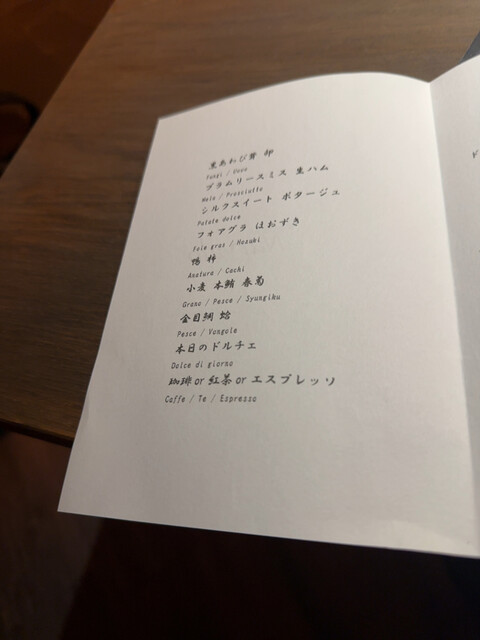 黒あわび茸 卵
Fungi / Uovo
プラムリースミス 生ハム
Mela / Prosciutto
シルクスイート ポタージュ
Patate dolce
フォアグラ ほおずき
Foie gras / Hozuki
鴨 柿
Anatura / Cachi
小麦 本鮪 春菊
Grano / Pesce / Syungiku
金目鯛 蛤
Pesce / Vongole
本日のドルチェ
Dolce di giorno
珈琲 or 紅茶 or エスプレッソ
Caffe / Te / Espresso
ド